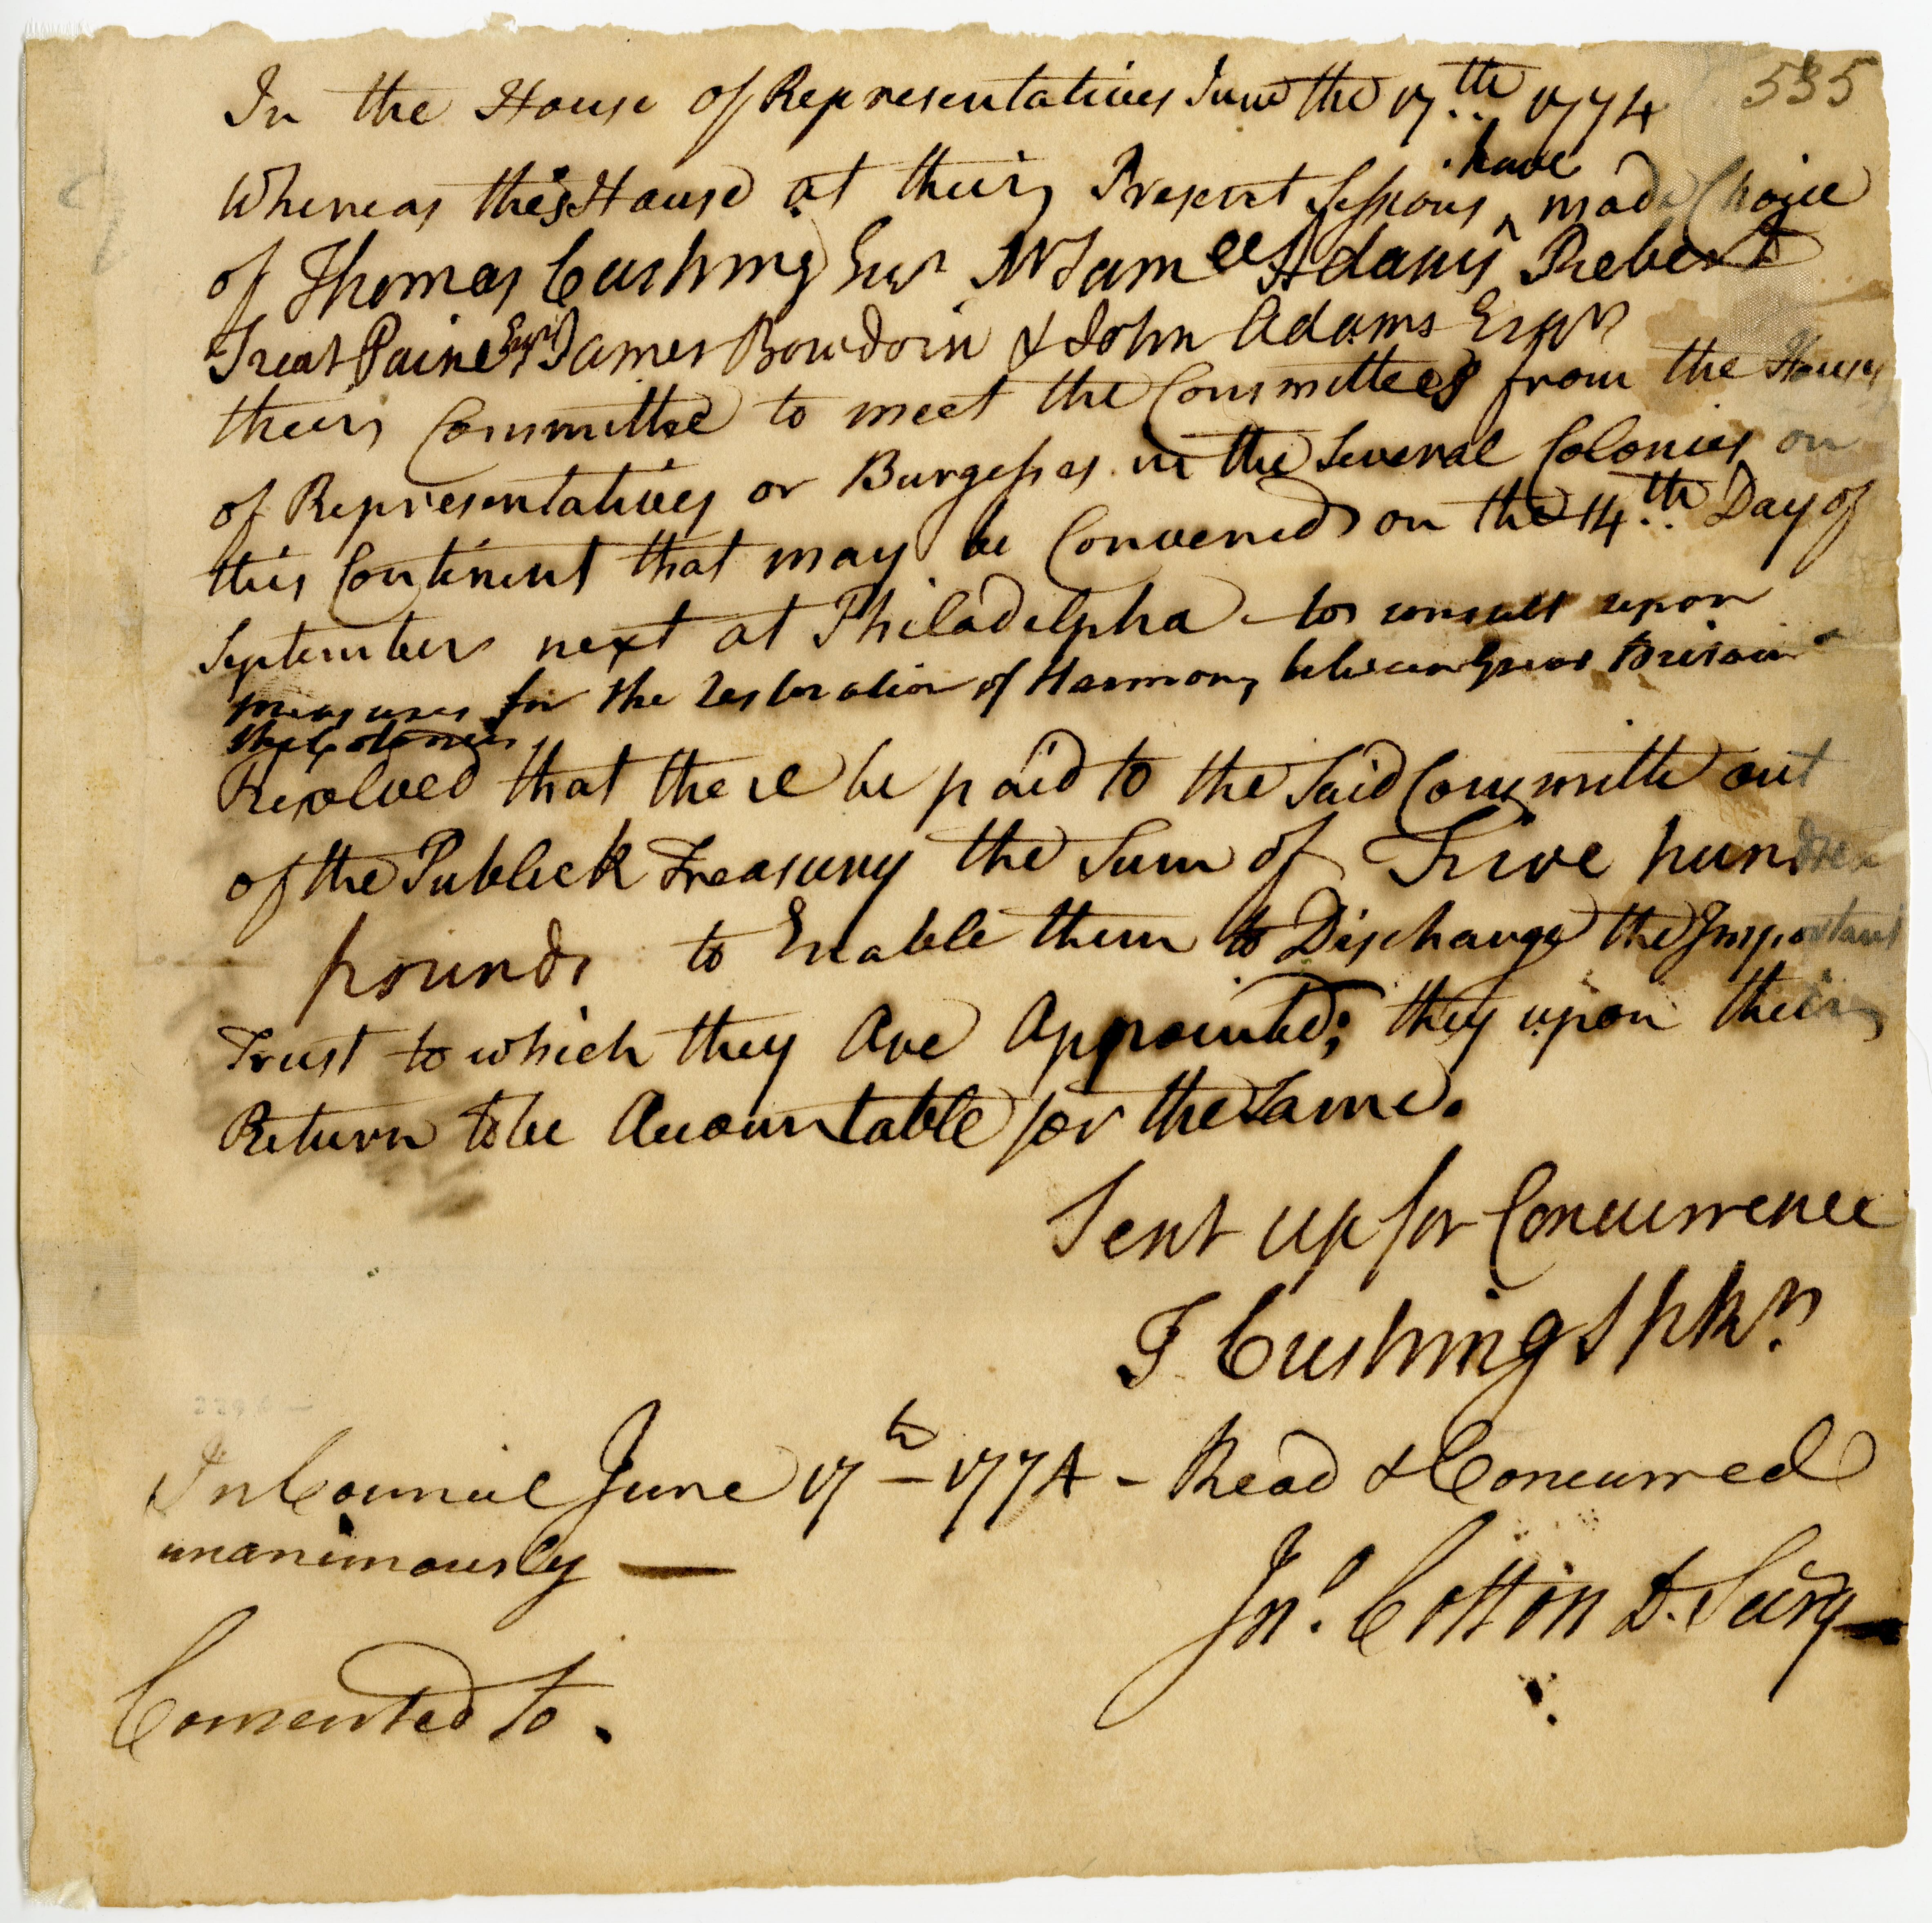 535
In the House of Representatives June the 17th 1774
Whereas this House at their Present Sessions have made Choice
of Thomas Cushing Esqr Mr Samll Adams Robert
Treat Paine Esqr James Bowdoin & John Adams Esqrs
their Committee to meet the Committees from the Houses
of Representatives or Burgesses in the Several Colonies on
this Continent that may be Convened on the 14th Day of
September next at Philadelpha to consult upon
measures for the restoration of Harmony between Great Britain &
the Colonies
Resolved that there be paid to the Said Committe out
of the Publick Treasury the Sum of Five hundred
pounds to Enable them to Discharge the Important
Trust to which they are appointed; they upon their
Return to be Accountable for the Same.
Sent up for Concurrence
T Cushing Spkr
In Council June 17th 1774 - Read & Concurred
unanimously —
Jno. Cotton D. Secry
Consented to.